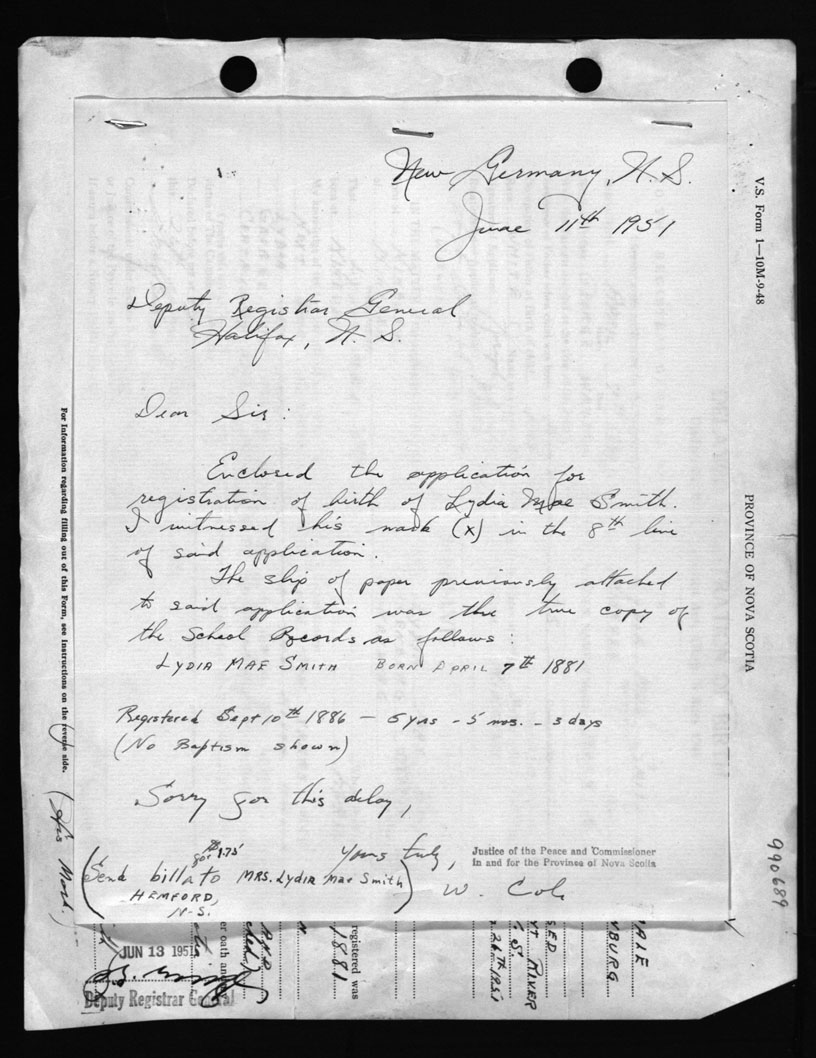 New Germany, N.S.
June 11th 1951
Deputy Registrar General
Halifax, N. S.
Dear Sir:
Enclosed the application for
registration of birth of Lydia Mae Smith.
I witnessed his mark (x) in the 8th line
of said application.
The slip of paper previously attached
to said application was the true copy of
the School Records as follows:
LYDIA MAE SMITH BORN APRIL 7th 1881
Registered Sept 10th 1886 – 5 yrs – 5 mos. – 3 days
(No Baptism shown)
Sorry for this delay,
Yours truly,
Justice of the Peace and Commissioner
in and for the Province of Nova Scotia
W. Cole
for 1.75
(Send bill to MRS. Lydia Mae Smith)
HEMFORD,
N-S.
V.S. Form 1—10M-9-48
PROVINCE OF NOVA SCOTIA
990689
For Information regarding filling out of this Form, see Instructions on the reverse side.
(His Mark.)
JUN 13 1951
Deputy Registrar General
er oath an
registered was
1881
26TH 1951
RIVER
BURG